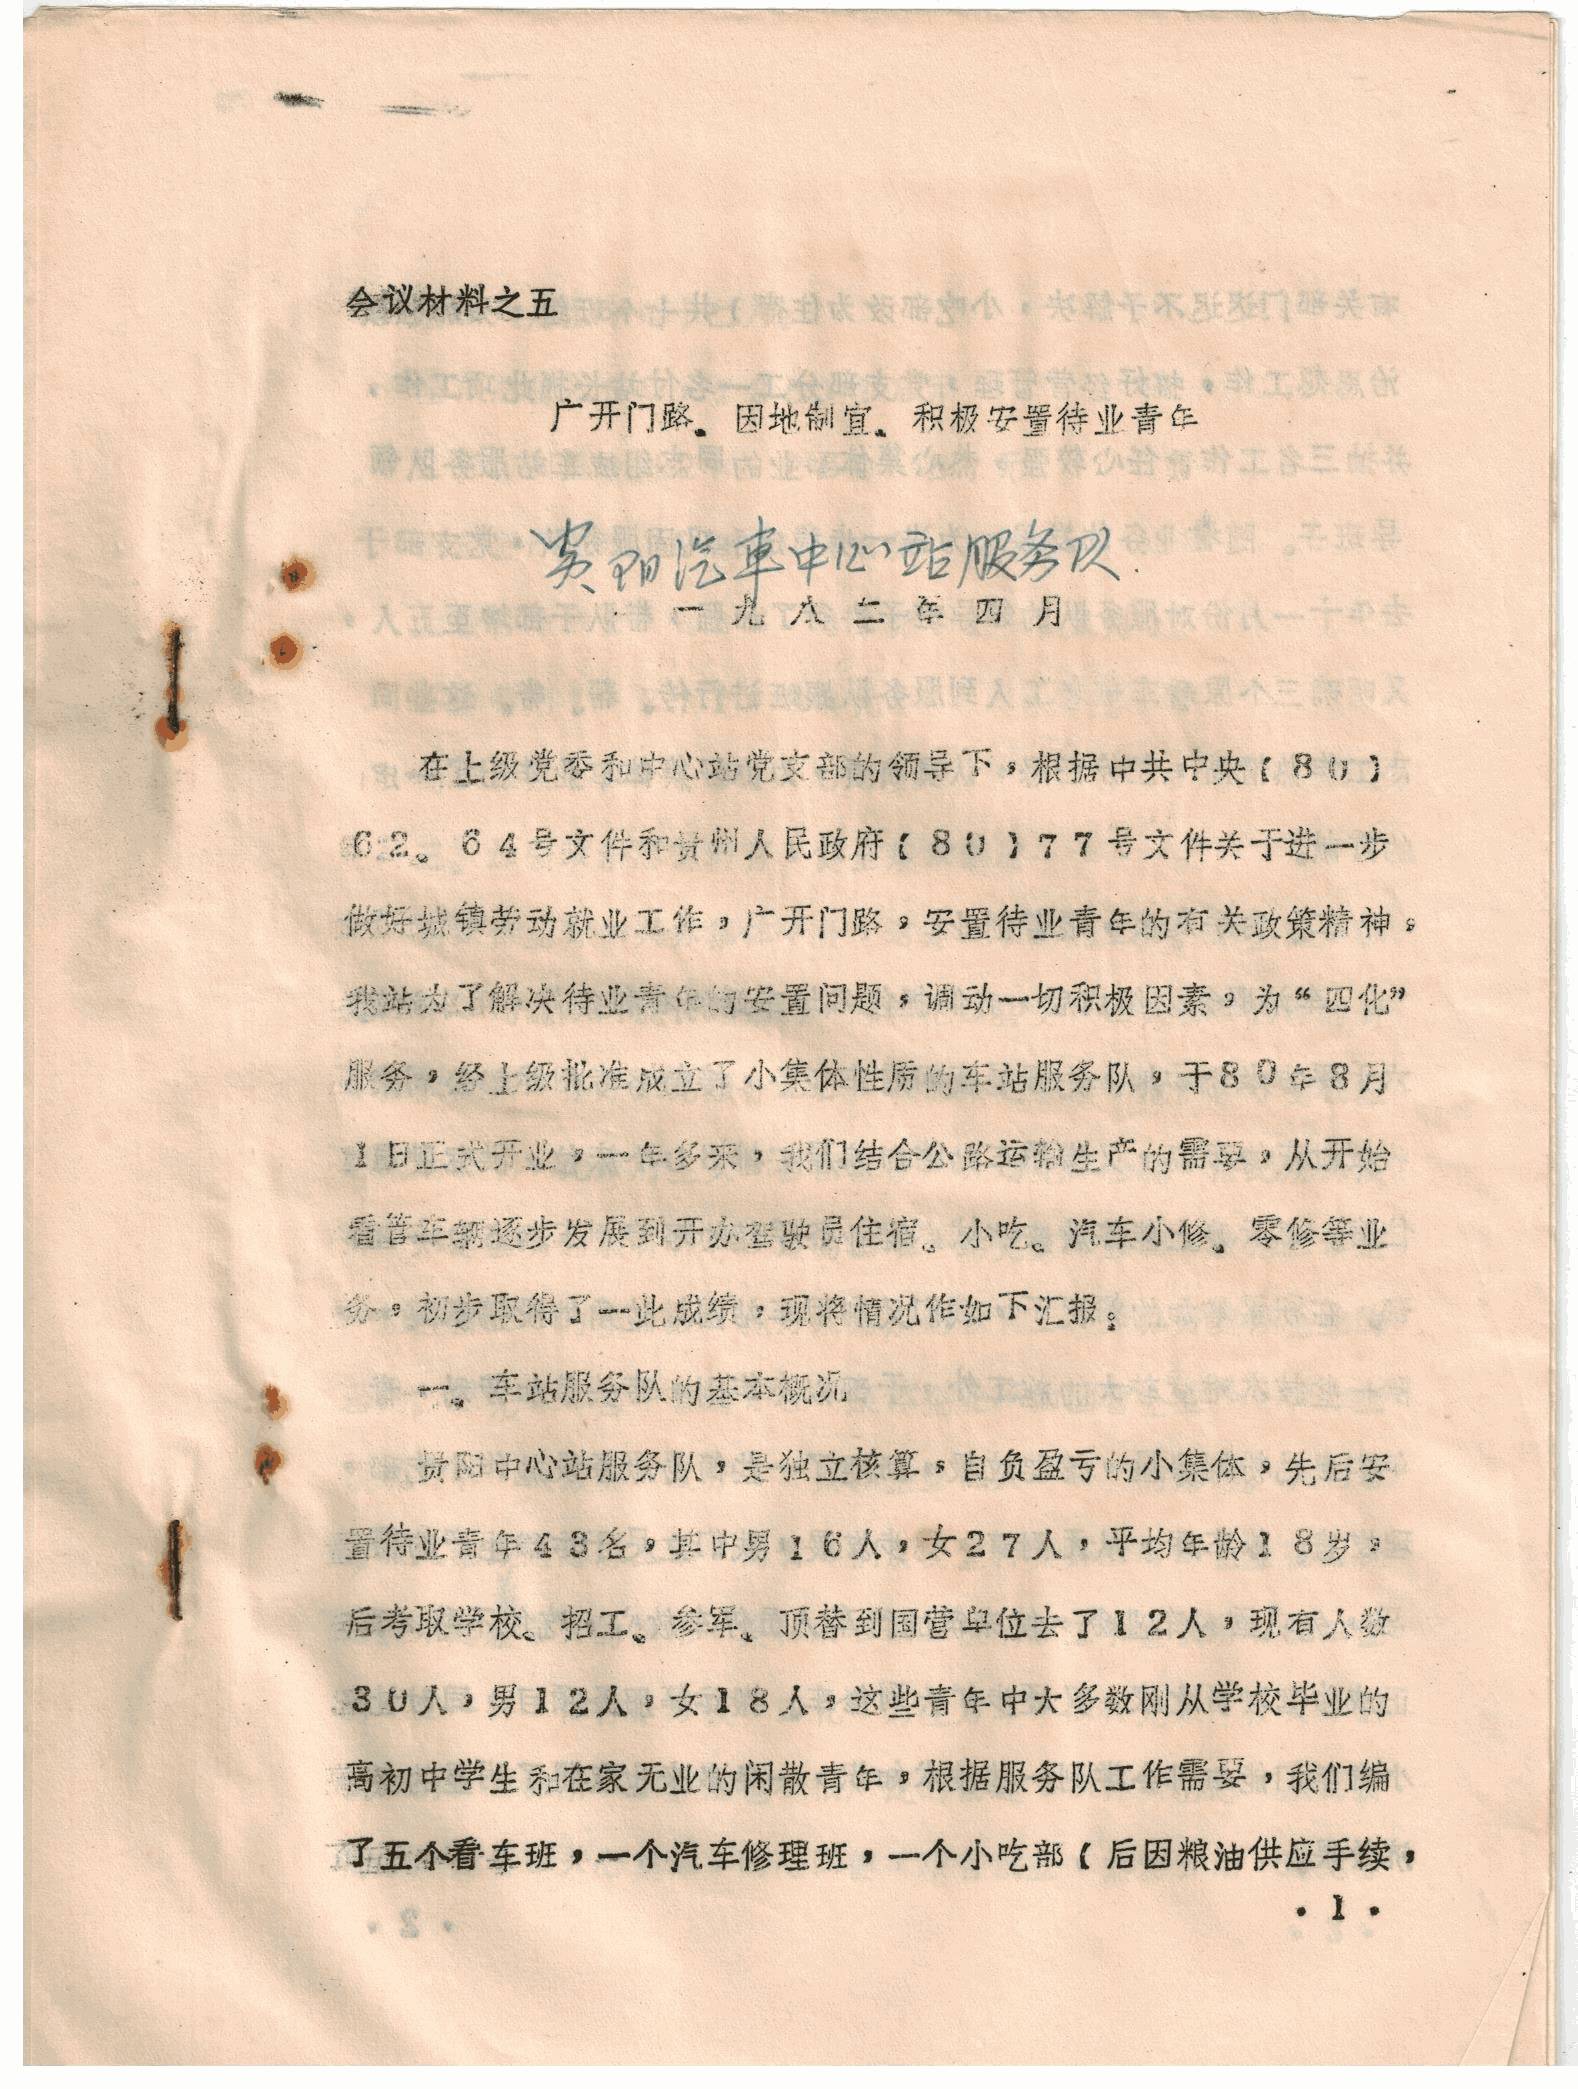 会议材料之五
广开门路。因地制宜。积极安置待业青年
贵阳汽車中心站服务队.
一九八二年四月
在上级党委和中心站党支部的领导下，根据中共中央（80）
62。64号文件和贵州人民政府（80）77号文件关于进一步
做好城镇劳动就业工作，广开门路，安置待业青年的有关政策精神，
我站为了解决待业青年的安置问题，调动一切积极因素，为“四化”
服务，经上级批准成立了小集体性质的车站服务队，于80年8月
1日正式开业，一年多来，我们结合公路运输生产的需要，从开始
看管车辆逐步发展到开办驾驶员住宿。小吃。汽车小修。零修等业
务，初步取得了一此成绩，现将情况作如下汇报：
一。车站服务队的基本概况
贵阳中心站服务队，是独立核算，自负盈亏的小集体，先后安
置待业青年43名，其中男16人，女27人，平均年龄18岁，
后考取学校。招工。参军。顶替到国营单位去了12人，现有人数
30人，男12人，女18人，这些青年中大多数刚从学校毕业的
高初中学生和在家无业的闲散青年，根据服务队工作需要，我们编
了五个看车班，一个汽车修理班，一个小吃部（后因粮油供应手续，
·1·